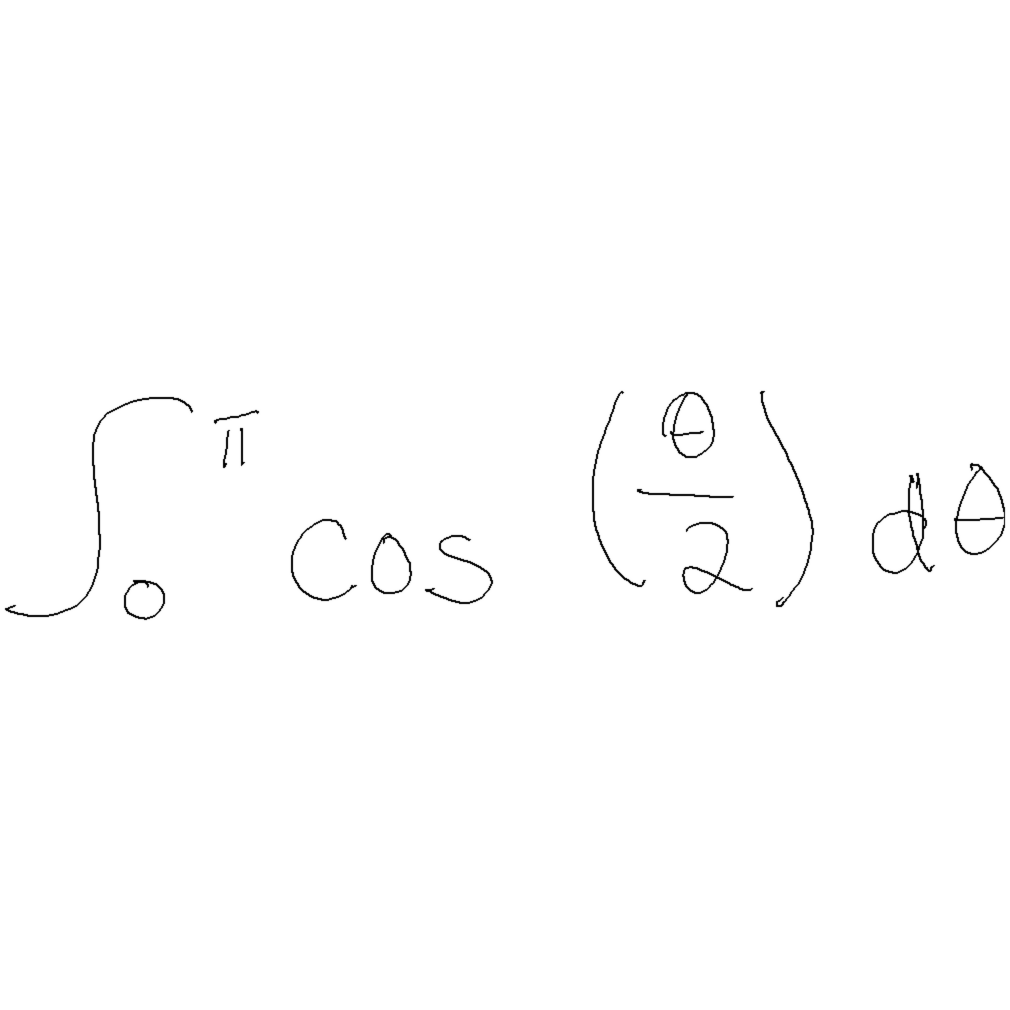 ∫_0^π cos(θ/2) dθ